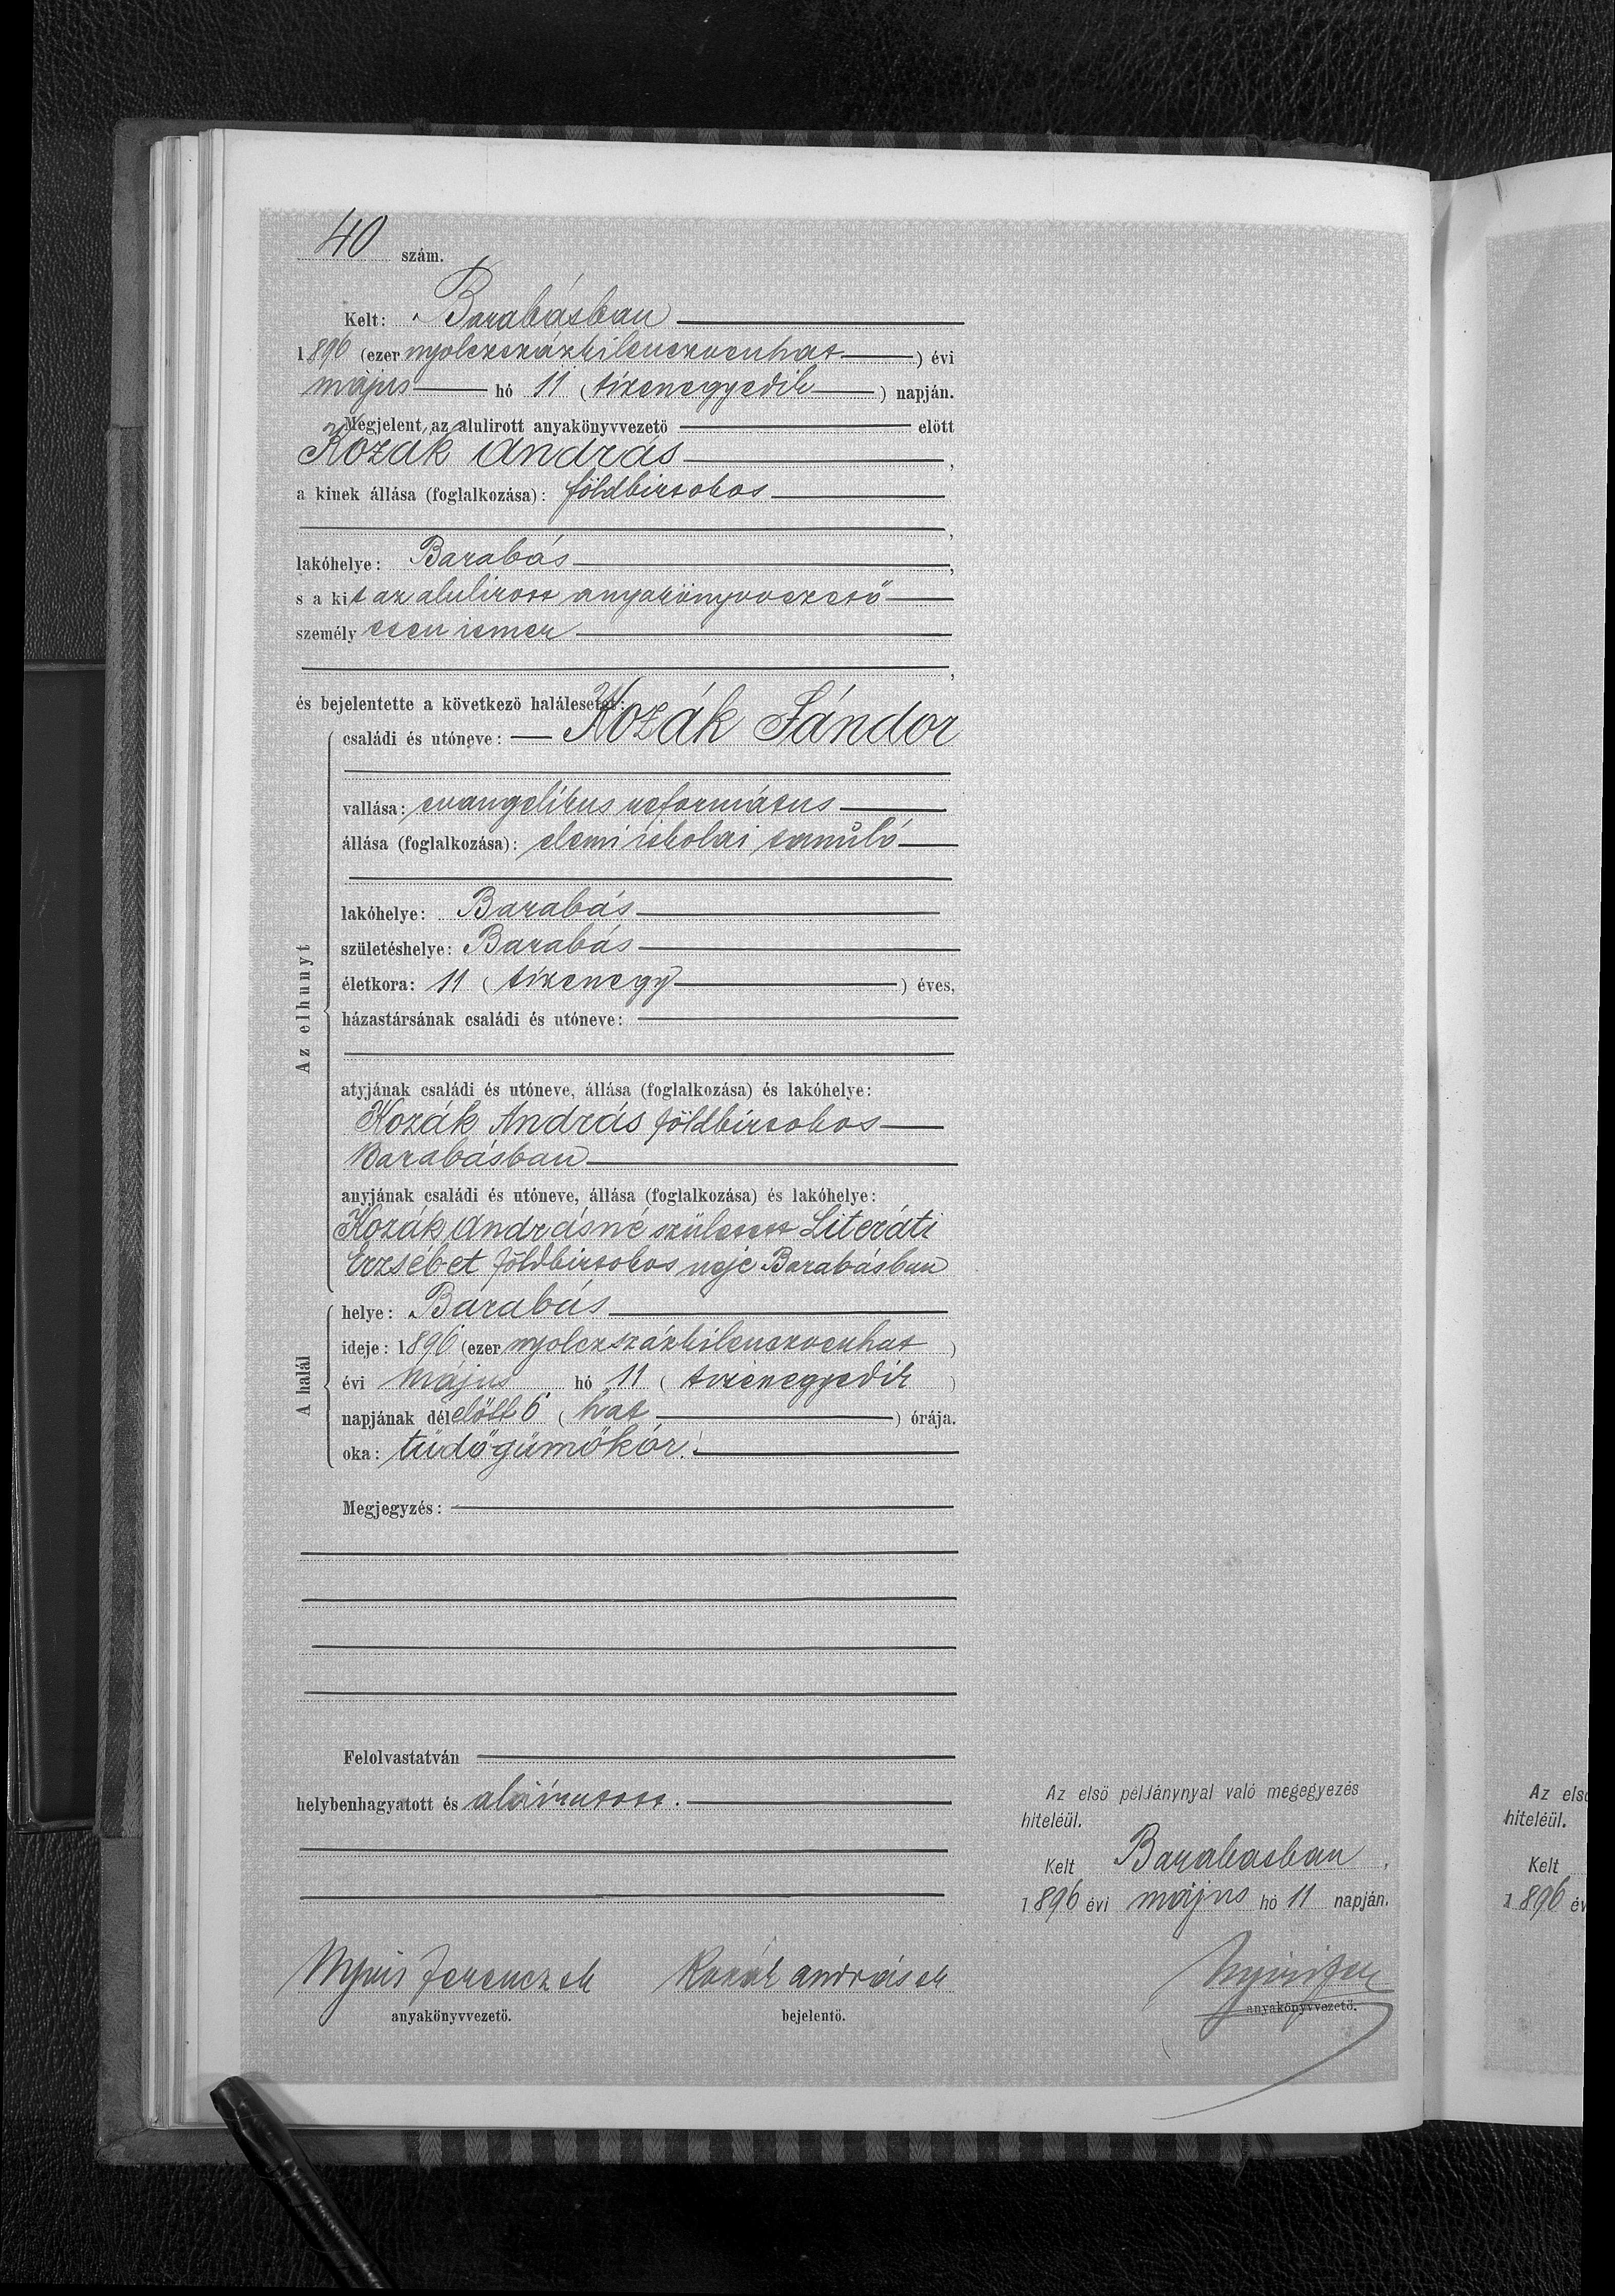 40 szám.
Kelt: Barabásban
1896 (ezer nyolczszázkilenczvenhat) évi
május hó 11 (tizenegyedik) napján.
Megjelent az alulirott anyakönyvvezető előtt
Kozák András,
a kinek állása (foglalkozása): földbirtokos
,
lakóhelye: Barabás,
s a kit az alulirott anyakönyvvezető
személyesen ismer
,
és bejelentette a következő halálesetet:
Az elhunyt
családi és utóneve: Kozák Sándor
vallása: evangelikus református
állása (foglalkozása): elemi iskolai tanuló
lakóhelye: Barabás
születéshelye: Barabás
életkora: 11 (tizenegy) éves,
házastársának családi és utóneve:
atyjának családi és utóneve, állása (foglalkozása) és lakóhelye:
Kozák András földbirtokos
Barabásban
anyjának családi és utóneve, állása (foglalkozása) és lakóhelye:
Kozák Andrásné született Literáti
Erzsébet földbirtokos neje Barabásban
A halál
helye: Barabás
ideje: 1896 (ezer nyolczszázkilenczvenhat)
évi május hó 11 (tizenegyedik)
napjának délelőtt 6 (hat) órája.
oka: tüdőgümőkór.
Megjegyzés:
Felolvastatván
helybenhagyatott és aláiratott.
Nyiri Ferencz sk
anyakönyvvezető.
Kozák András sk
bejelentő.
Az első példánynyal való megegyezés
hiteléül.
Kelt Barabasban,
1896 évi május hó 11 napján.
anyakönyvvezető.
Az első
hiteléül.
Kelt
1896 év